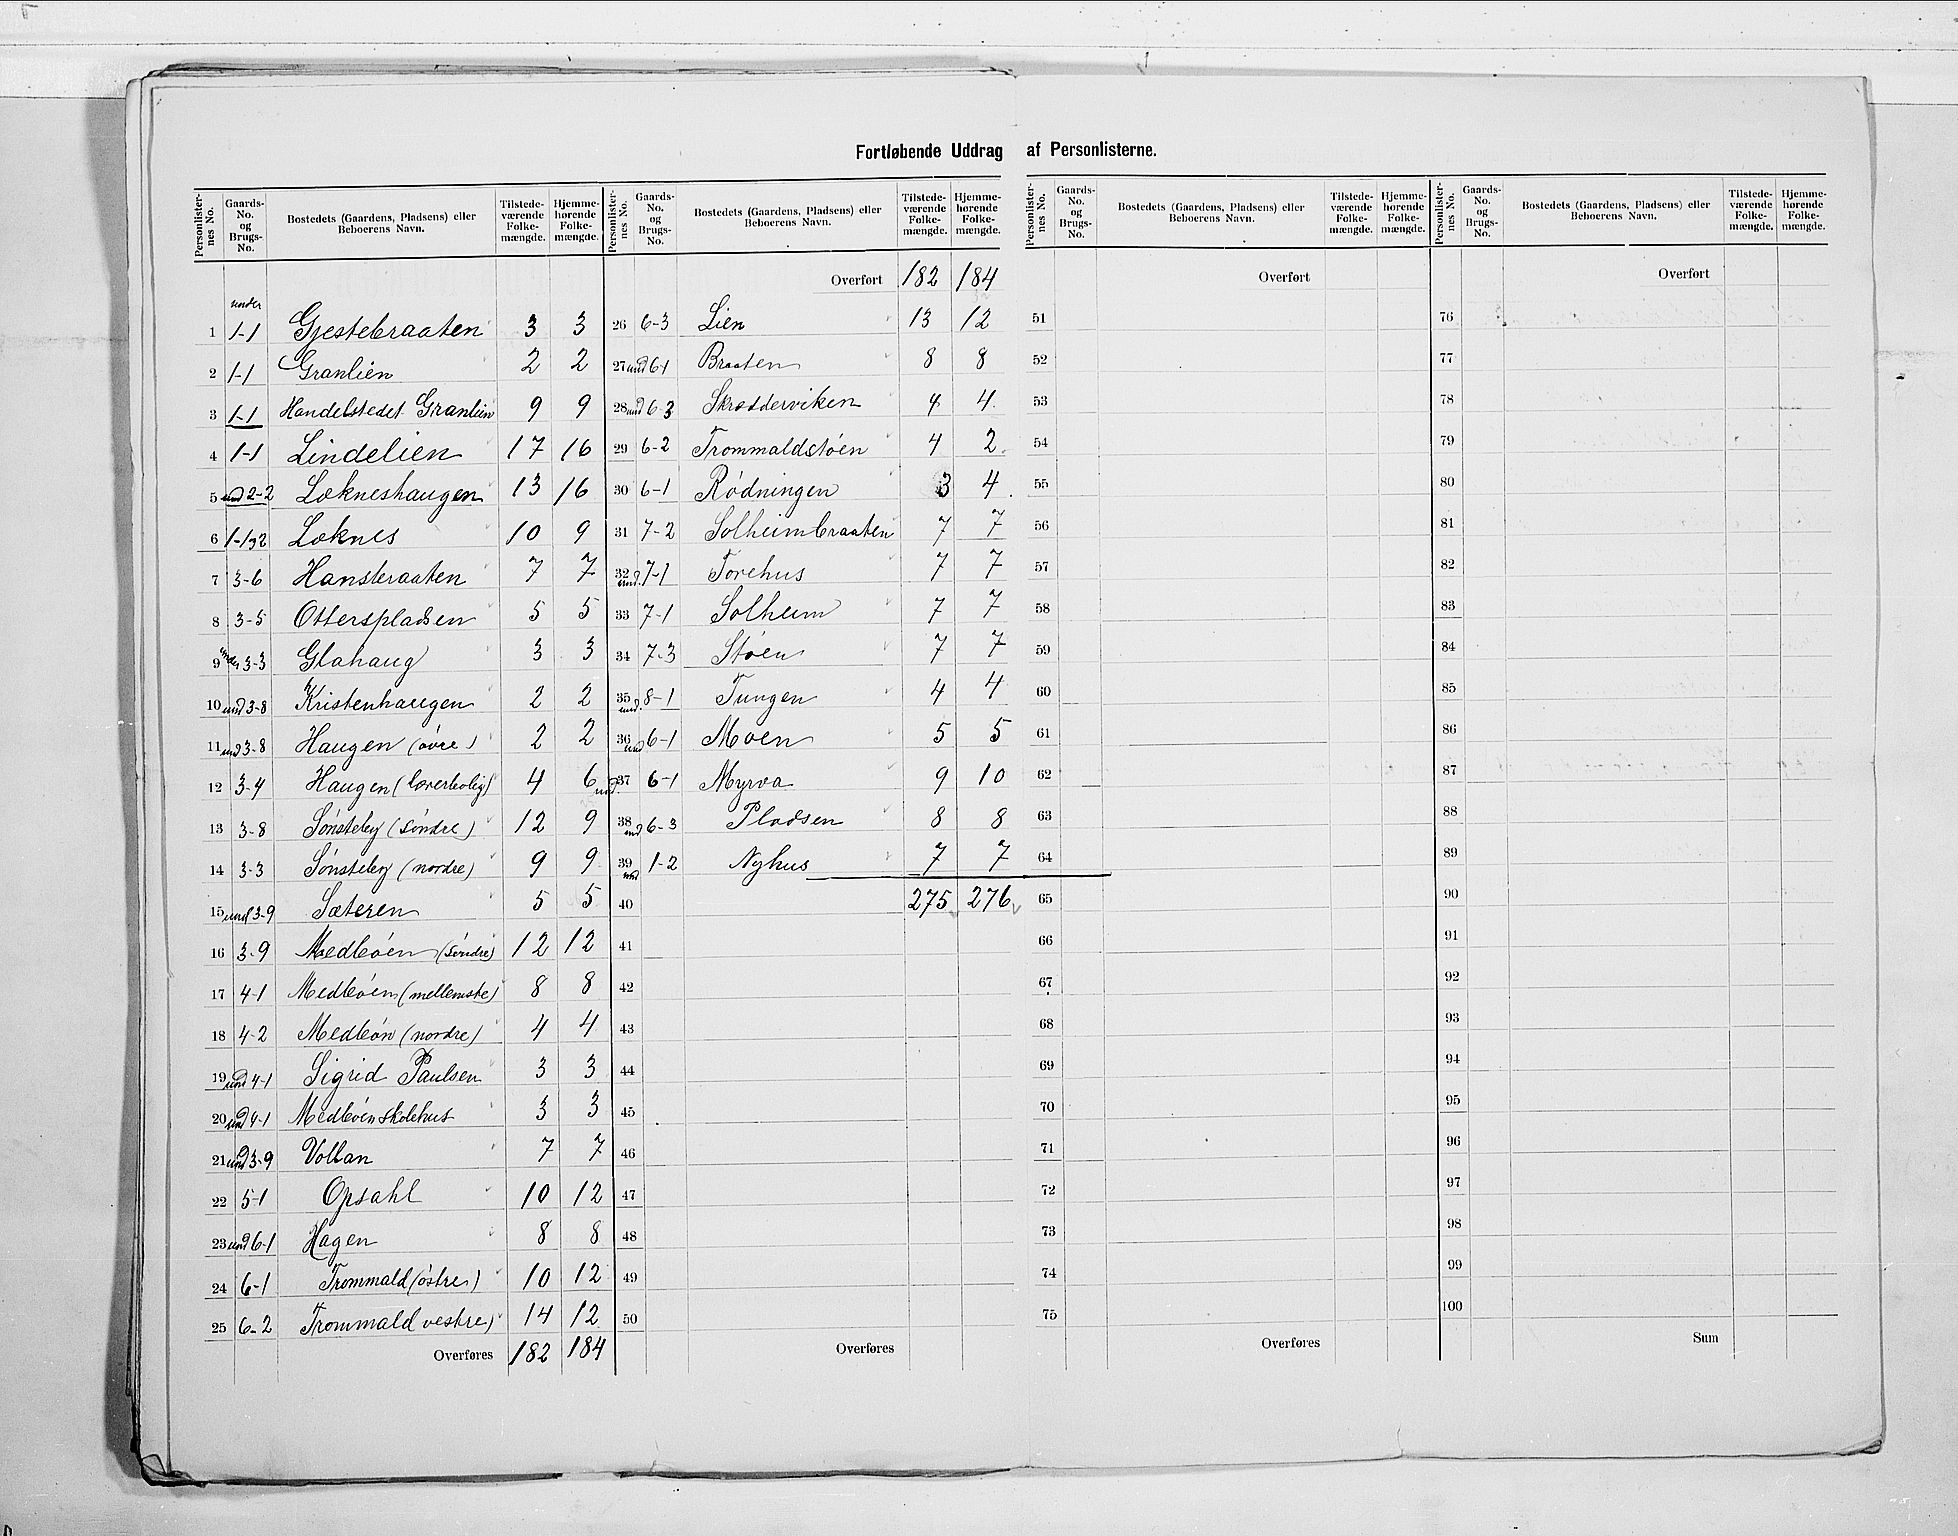 Fortløbende Uddrag af Personlisterne.
Personlisternes No. Gaards-No. og Brugs-No. Bostedets (Gaardens, Pladsens) eller Beboerens Navn. Tilstedeværende Folkemængde. Hjemmehørende Folkemængde.
1 under 1-1 Gjestebraaten 3 3
2 1-1 Granlien 2 2
3 1-1 Handelstedet Granlien 9 9
4 1-1 Lindelien 17 16
5 und 2-2 Lækneshaugen 13 16
6 1-1,2 Læknes 10 9
7 3-6 Hansbraaten 7 7
8 3-5 Otterspladsen 5 5
9 under 3-3 Glahaug 3 3
10 und 3-8 Kristenhaugen 2 2
11 und 3-8 Haugen (øvre) 2 2
12 3-4 Haugen (lærerbolig) 4 6
13 3-8 Sønsteby (søndre) 12 9
14 3-3 Sønsteby (nordre) 9 9
15 und 3-9 Sæteren 5 5
16 3-9 Medbøen (søndre) 12 12
17 4-1 Medbøen (mellemste) 8 8
18 4-2 Medbøn (nordre) 4 4
19 und 4-1 Sigrid Paulsen 3 3
20 und 4-1 Medbøen skolehus 3 3
21 und 3-9 Vollan 7 7
22 5-1 Opsahl 10 12
23 und 6-1 Hagen 8 8
24 6-1 Trommald (østre) 10 12
25 6-2 Trommald vestre) 14 12
Overføres 182 184
Personlisternes No. Gaards-No. og Brugs-No. Bostedets (Gaardens, Pladsens) eller Beboerens Navn. Tilstedeværende Folkemængde. Hjemmehørende Folkemængde.
Overført 182 184
26 6-3 Lien 13 12
27 und 6-1 Braaten 8 8
28 und 6-3 Skrædderviken 4 4
29 6-2 Trommaldstøen 4 2
30 6-1 Rødningen 3 4
31 7-2 Solheimbraaten 7 7
32 und. 7-1 Torehus 7 7
33 7-1 Solheim 7 7
34 7-3 Støen 7 7
35 und. 8-1 Tungen 4 4
36 und 6-1 Moen 5 5
37 und. 6-1 Myrva 9 10
38 und 6-3 Pladsen 8 8
39 und 1-2 Nyhus 7 7
40 275 276
41
42
43
44
45
46
47
48
49
50
Overføres
Personlisternes No. Gaards-No. og Brugs-No. Bostedets (Gaardens, Pladsens) eller Beboerens Navn. Tilstedeværende Folkemængde. Hjemmehørende Folkemængde.
Overført
51
52
53
54
55
56
57
58
59
60
61
62
63
64
65
66
67
68
69
70
71
72
73
74
75
Overføres
Personlisternes No. Gaards-No. og Brugs-No. Bostedets (Gaardens, Pladsens) eller Beboerens Navn. Tilstedeværende Folkemængde. Hjemmehørende Folkemængde.
Overført
76
77
78
79
80
81
82
83
84
85
86
87
88
89
90
91
92
93
94
95
96
97
98
99
100
Sum